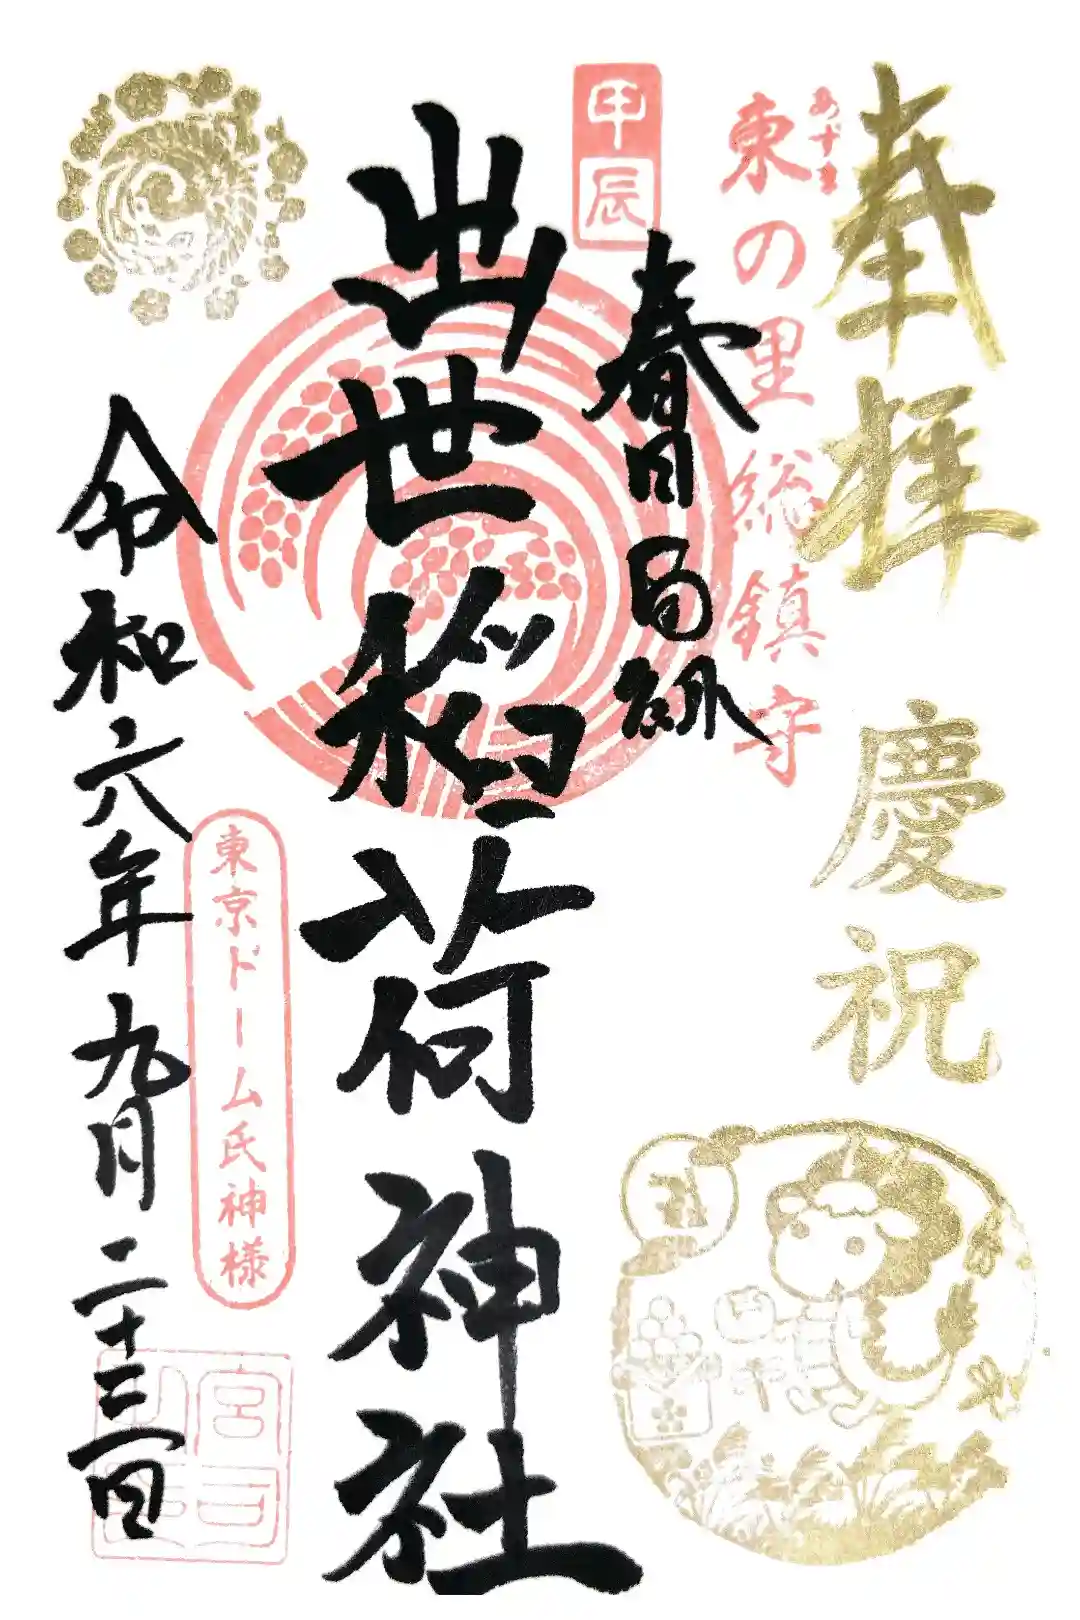 奉拝
慶祝
あずま
東の里総鎮守
甲辰
春日局御
出世稲荷神社
東京ドーム氏神様
令和六年九月二十三日